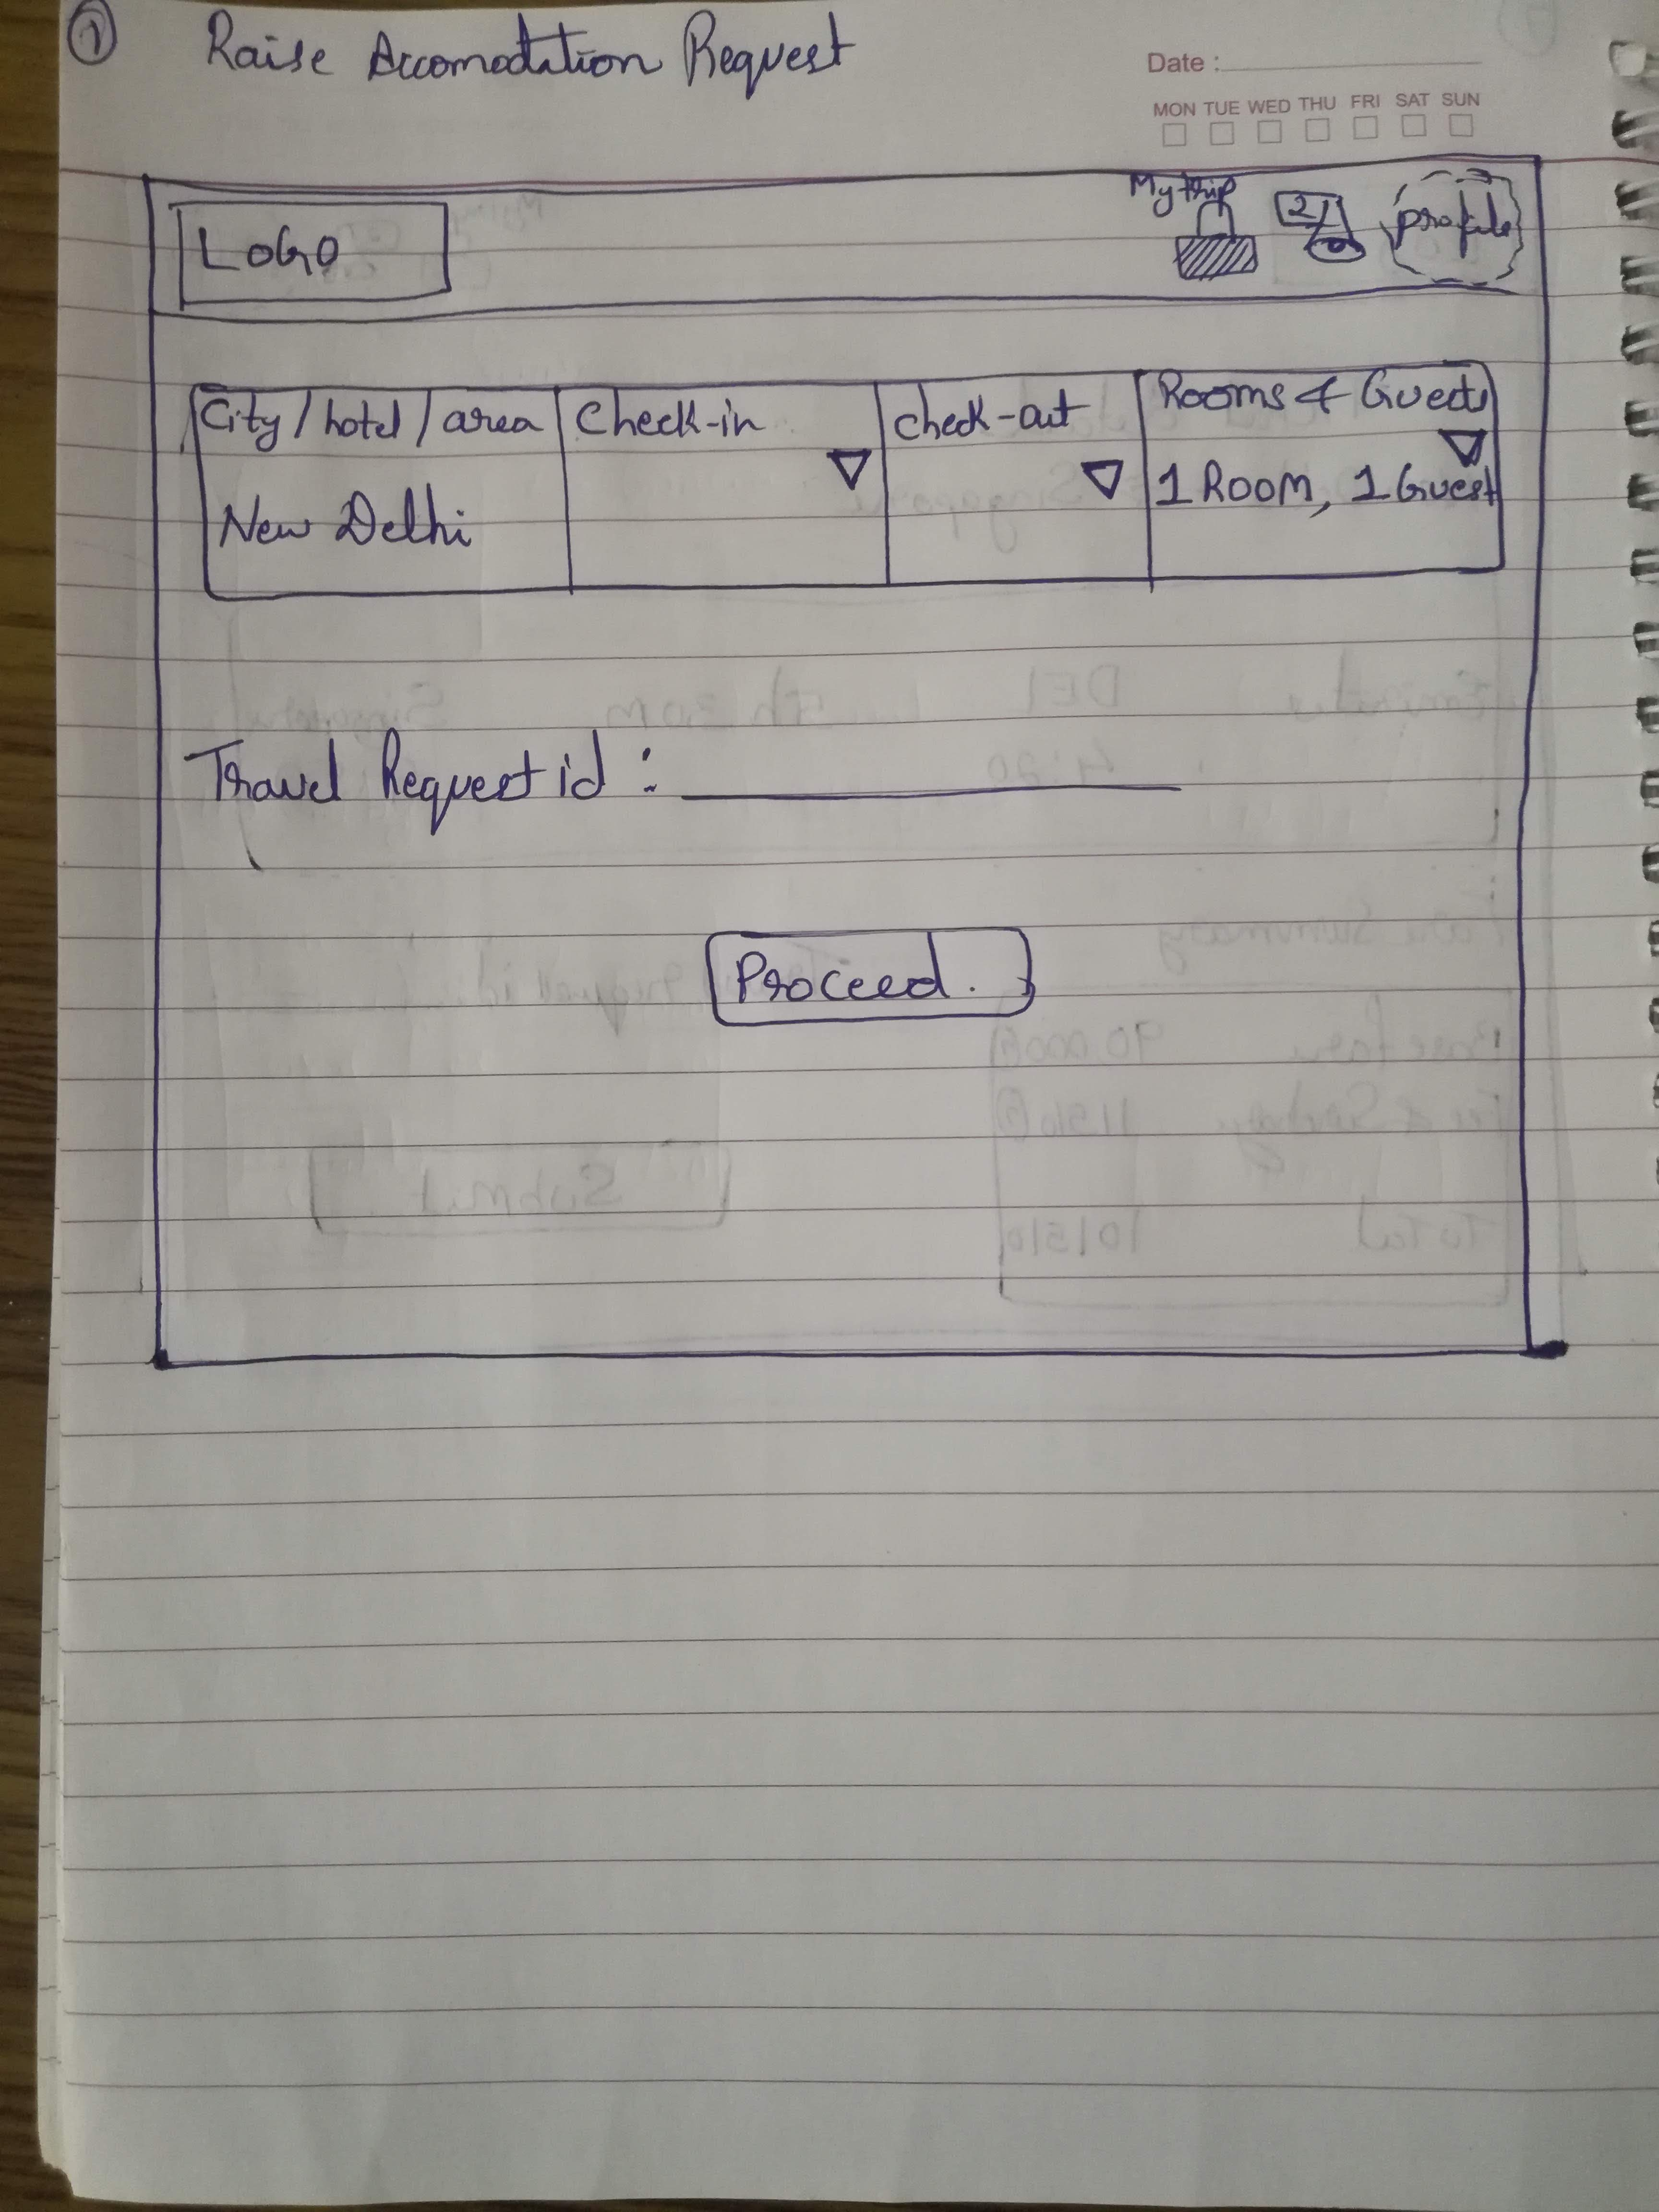 1
Raise Accomodation Request
Date :
MON TUE WED THU FRI SAT SUN
LOGO
My trip
2
profile
City / hotel / area
New Delhi
Check-in
check-out
Rooms & Guests
1 Room, 1 Guest
Travel Request id :
Proceed.